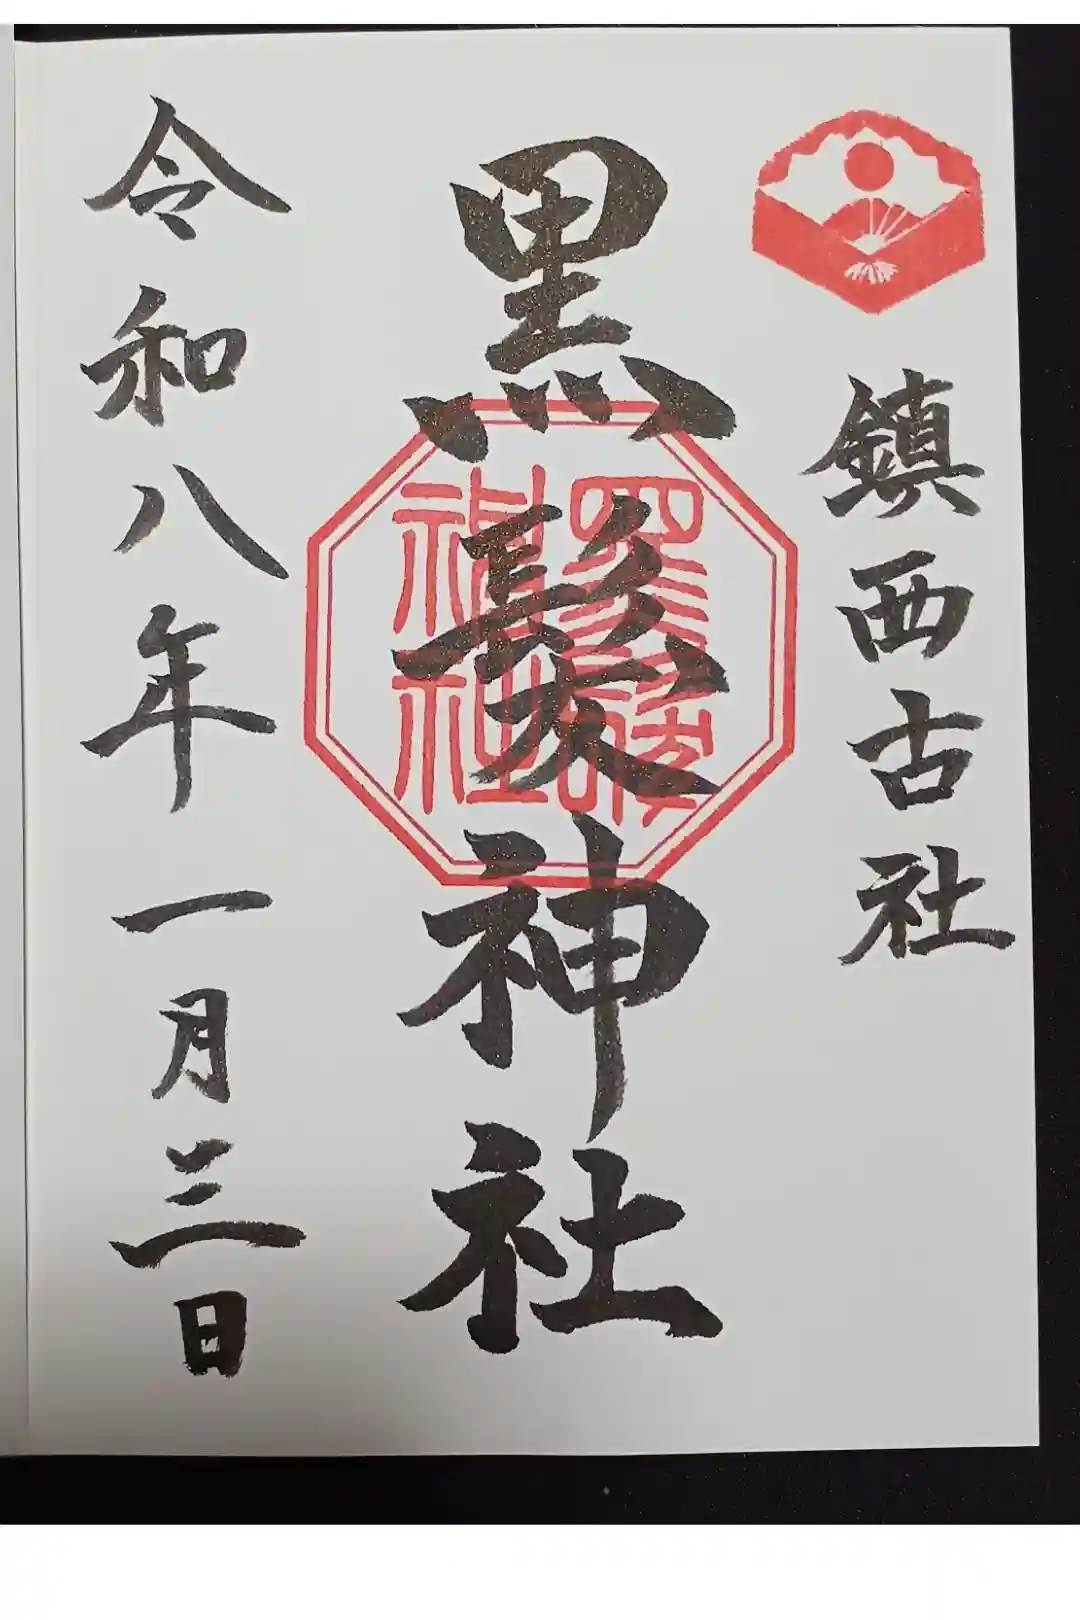 鎮西古社
黒髪神社
令和八年一月三日